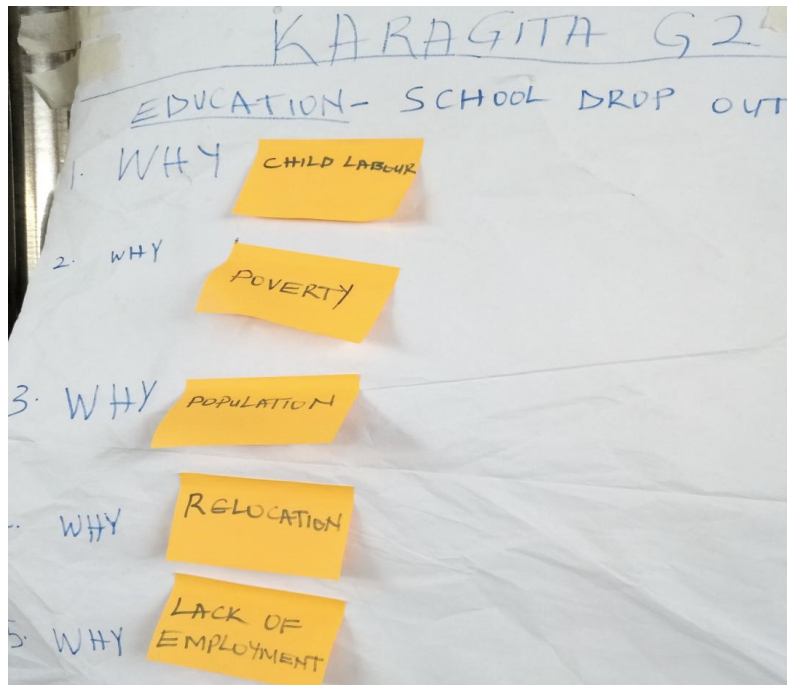 KARAGITA G2
EDUCATION- SCHOOL DROP OUT
1. WHY CHILD LABOUR
2. WHY POVERTY
3. WHY POPULATION
WHY RELOCATION
5. WHY LACK OF
EMPLOYMENT